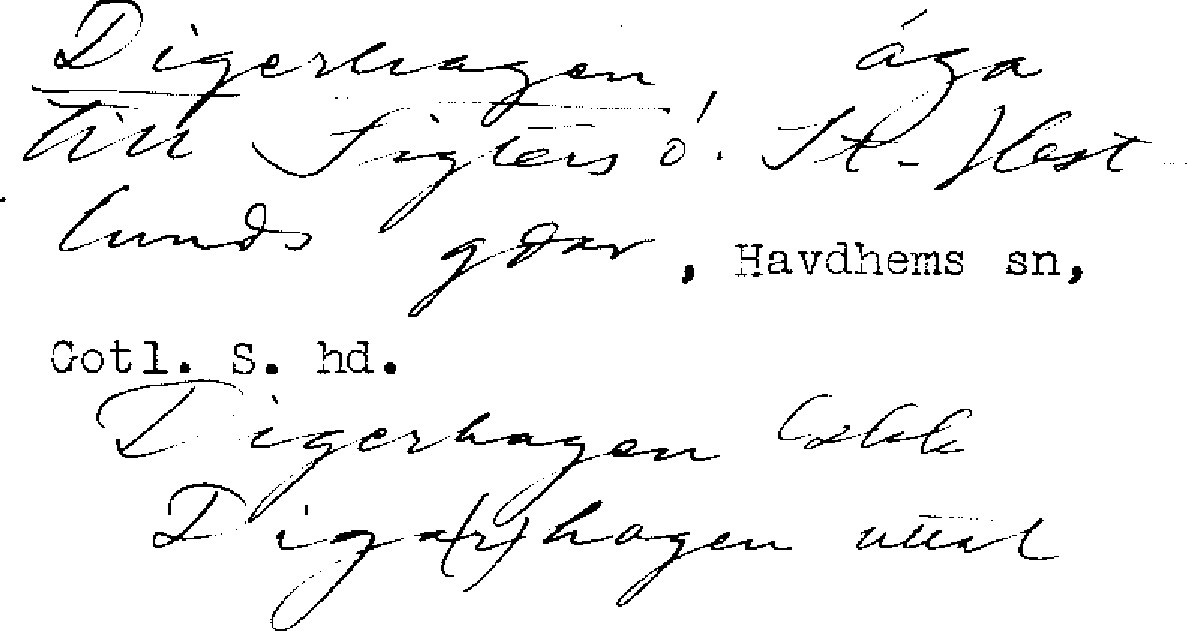 Digerhagen ága
till Sigters ó. St. Hast
lunds gdar, Havdhems sn,
Gotl. S. hd.
Digerhagen
Diga(r)hagen uttal